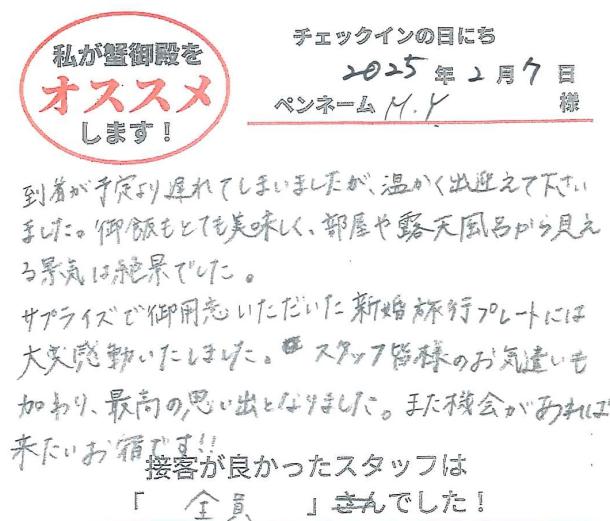 私が蟹御殿を
オススメ
します！
チェックインの日にち
2025年2月7日
ペンネーム M.Y 様
到着が予定より遅れてしまいましたが、温かく出迎えて下さい
ました。御飯もとても美味しく、部屋や露天風呂から見え
る景気は絶景でした。
サプライズで御用意いただいた新婚旅行プレートには
大変感動いたしました。スタッフ皆様のお気遣いも
加わり、最高の思い出となりました。また機会があれば
来たいお宿です!!
接客が良かったスタッフは
「 全員 」さんでした！